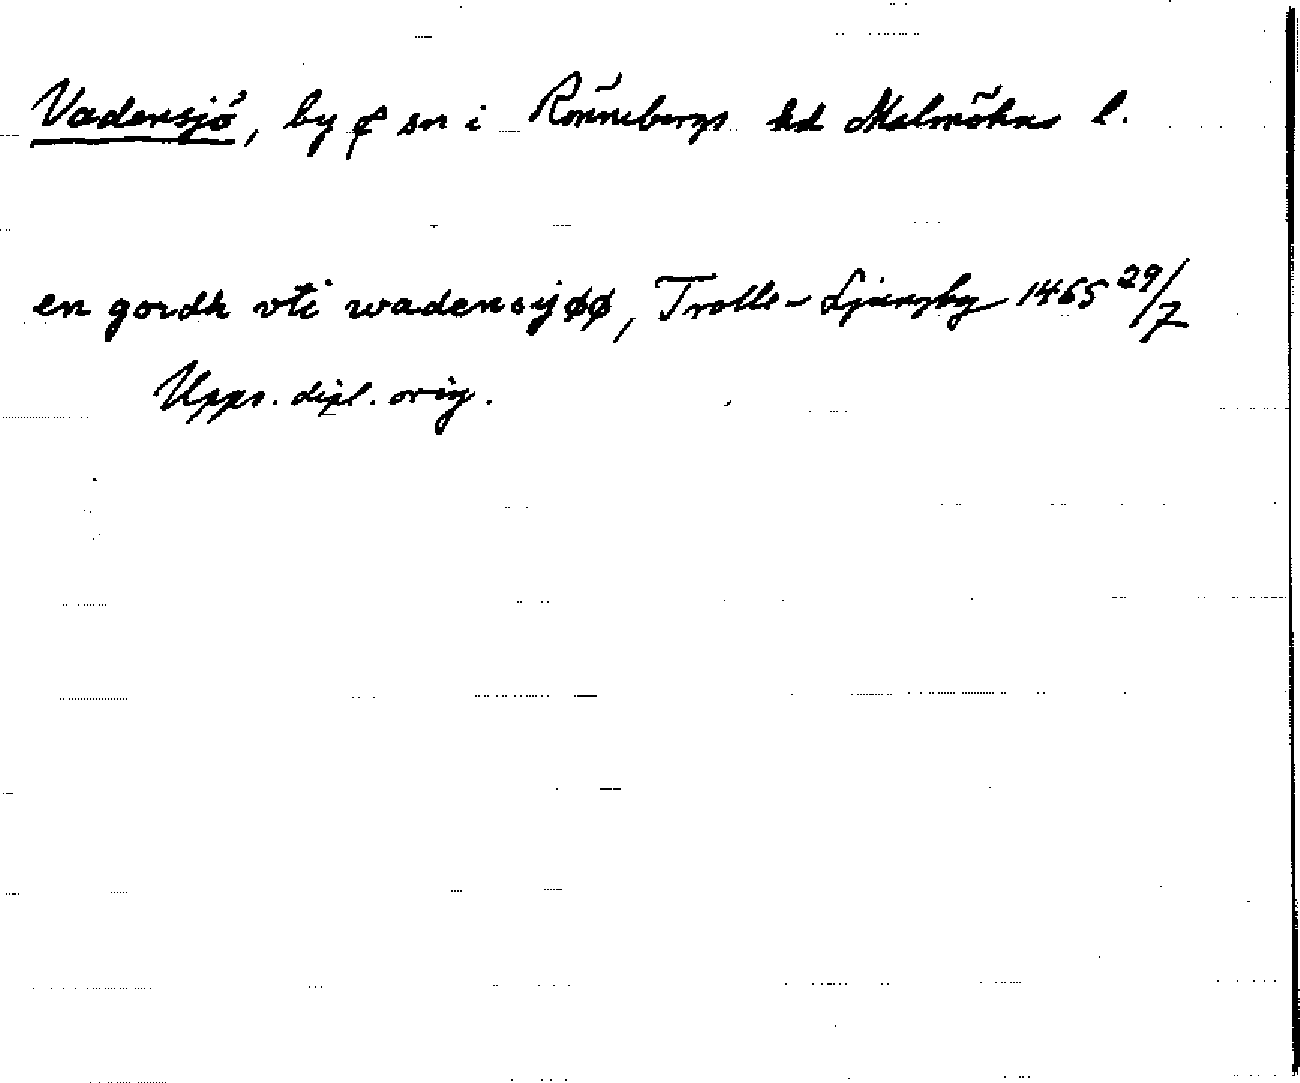 Vadensjö, by o sn i Rönnebergs hd Malmöhus l.
en gordh vti wadensijøø, Trolle-Ljungby 1465 29/7
Upps. dipl. orig.